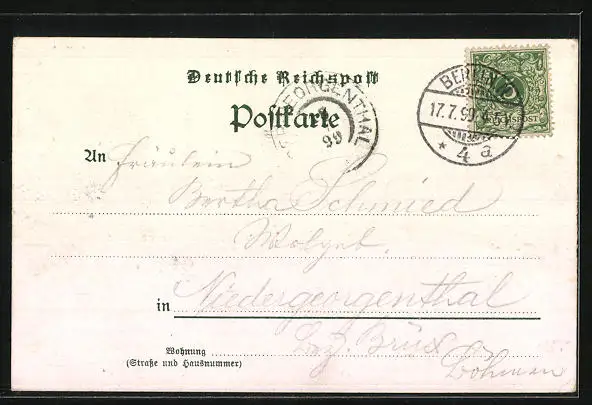 Deutsche Reichspost
Postkarte
BERLIN
17.7.99
* 4a
REICHSPOST
GEORGENTHAL
99
An Fräulein
Bertha Schmied
Wolgeb.
in Niedergeorgenthal
Bez. Brüx
Wohnung
(Straße und Hausnummer)
Böhmen